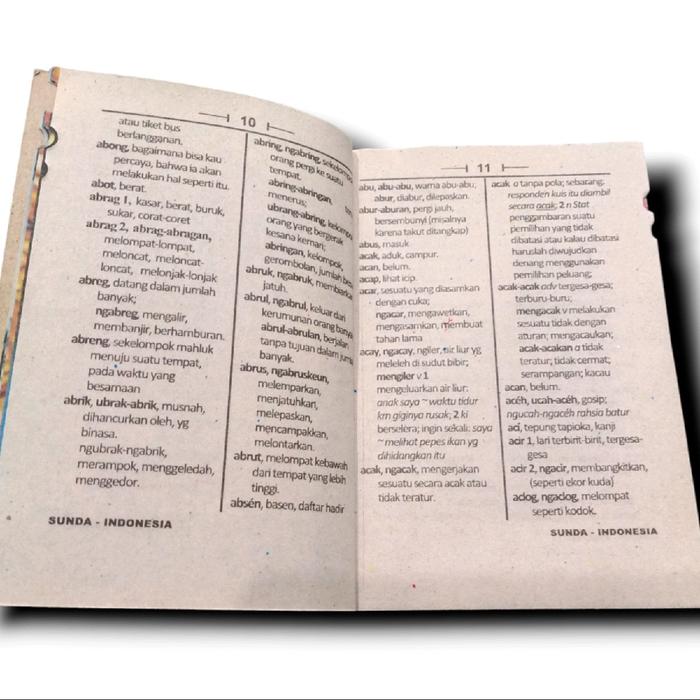 10
atau tiket bus
berlangganan.
abong, bagaimana bisa kau
percaya, bahwa ia akan
melakukan hal seperti itu.
abot, berat.
abrag 1, kasar, berat, buruk,
sukar, corat-coret
abrag 2, abrag-abragan,
melompat-lompat,
meloncat, meloncat-
loncat, melonjak-lonjak
abreg, datang dalam jumlah
banyak;
ngabreg, mengalir,
membanjir, berhamburan.
abreng, sekelompok mahluk
menuju suatu tempat,
pada waktu yang
besamaan
abrik, ubrak-abrik, musnah,
dihancurkan oleh, yg
binasa.
ngubrak-ngabrik,
merampok, menggeledah,
menggedor.
abring, ngabring,
orang pergi ke suatu
tempat.
abring-abringan,
menerus;
ubrang-abring,
orang yang bergerak
kesana kemari;
abringan, kelompok,
gerombolan, jumlah
abruk, ngabruk,
jatuh.
abrul, ngabrul, keluar dari
kerumunan orang
abrul-abrulan, berjalan
tanpa tujuan dalam
banyak.
abrus, ngabruskeun,
melemparkan,
menjatuhkan,
melepaskan,
mencampakkan,
melontarkan.
abrut, melompat kebawah
dari tempat yang lebih
tinggi.
absén, basen, daftar hadir
SUNDA - INDONESIA
11
abu, abu-abu, warna abu-abu;
abur, diabur, dilepaskan.
abur-aburan, pergi jauh,
bersembunyi (misalnya
karena takut ditangkap)
abus, masuk
acak, aduk, campur.
acan, belum.
acap, lihat icip.
acar, sesuatu yang diasamkan
dengan cuka;
ngacar, mengawetkan,
mengasamkan, membuat
tahan lama
acay, ngacay, ngiler, air liur yg
meleleh di sudut bibir;
mengiler v 1
mengeluarkan air liur:
anak saya ~ waktu tidur
krn giginya rusak; 2 ki
berselera; ingin sekali: saya
~ melihat pepes ikan yg
dihidangkan itu
acak, ngacak, mengerjakan
sesuatu secara acak atau
tidak teratur.
acak a tanpa pola; sebarang:
responden kuis itu diambil
secara acak; 2 n Stat
penggambaran suatu
pemilihan yang tidak
dibatasi atau kalau dibatasi
haruslah diwujudkan
denang menggunakan
pemilihan peluang;
acak-acak adv tergesa-gesa;
terburu-buru;
mengacak v melakukan
sesuatu tidak dengan
aturan; mengacaukan;
acak-acakan a tidak
teratur; tidak cermat;
serampangan; kacau
acan, belum.
acéh, ucah-acéh, gosip;
ngucah-ngacéh rahsia batur
aci, tepung tapioka, kanji
acir 1, lari terbirit-birit, tergesa-
gesa
acir 2, ngacir, membangkitkan,
(seperti ekor kuda)
adog, ngadog, melompat
seperti kodok.
SUNDA - INDONESIA